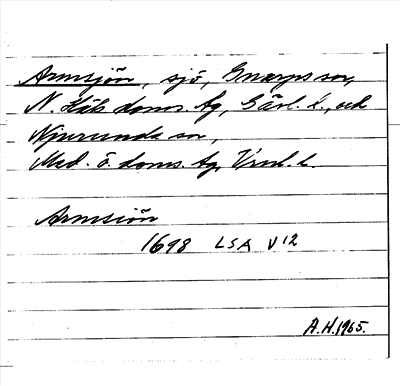 Armsjön, sjö, Gnarps sn,
N. Häls. doms. tg, Gävl. l., och
Njurunda sn,
Med. ö. doms. tg, Vnl. l.
Armsiön
1698 LSA V 12
A.H. 1965.